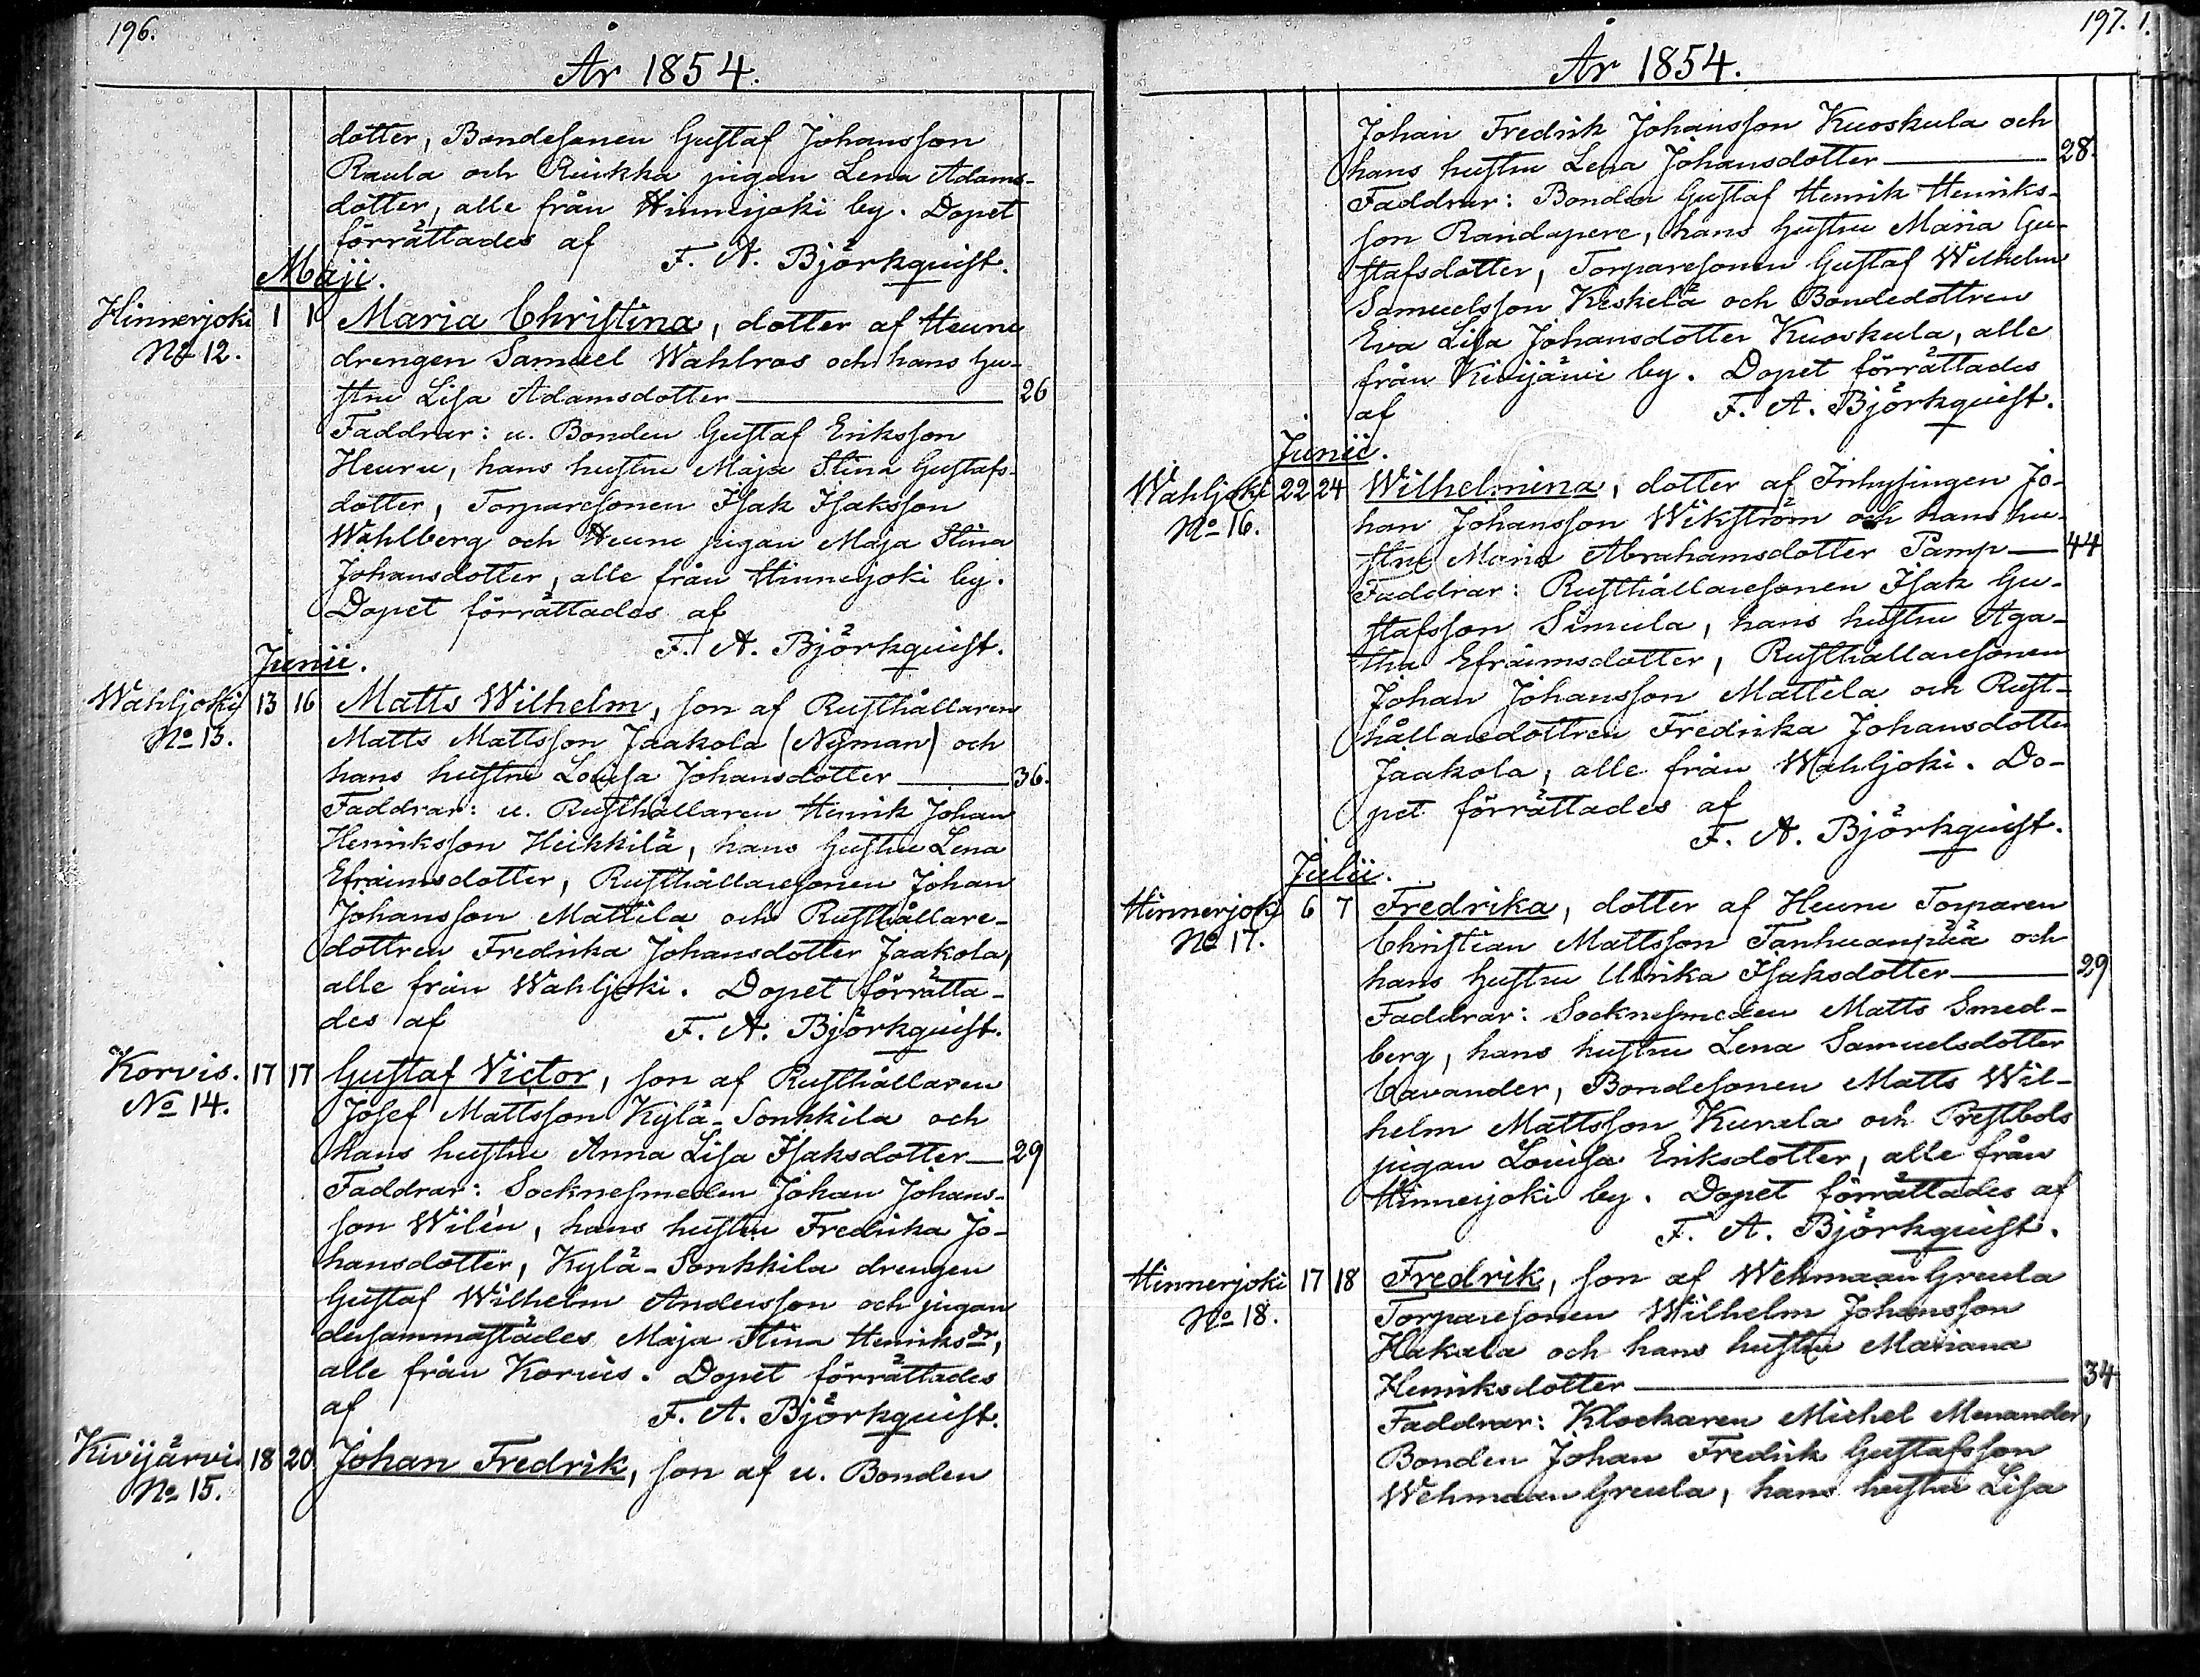 196.
År 1854.
dotter, Bondesonen Gustaf Johansson
Raula och Ruikka pigan Lena Adams-
dotter, alle från Hinnerjoki by. Dopet
förrättades af
F. A. Björkquist.
Maji.
Hinnerjoki 1 1 Maria Christina, dotter af Heuru
No 12. drengen Samuel Wahlros och hans hu-
stru Lisa Adamsdotter — 26
Faddrar: u. Bonden Gustaf Eriksson
Heuru, hans hustru Maja Stina Gustafs-
dotter, Torparesonen Isak Isaksson
Wahlberg och Heuru pigan Maja Stina
Johansdotter, alle från Hinnerjoki by.
Dopet förrättades af
F. A. Björkquist.
Junii.
Wahljoki 13 16 Matts Wilhelm, son af Rusthållaren
No 13. Matts Mattsson Jaakola (Nyman) och
hans hustru Lovisa Johansdotter — 36.
Faddrar: u. Rusthållaren Henrik Johan
Henriksson Heikkilä, hans hustru Lena
Efraimsdotter, Rusthållaresonen Johan
Johansson Mattila och Rusthållare-
dottren Fredrika Johansdotter Jaakola,
alle från Wahljoki. Dopet förrätta-
des af
F. A. Björkquist.
Korvis. 17 17 Gustaf Victor, son af Rusthållaren
No 14. Josef Mattsson Kylä-Sonkkila och
hans hustru Anna Lisa Isaksdotter — 29
Faddrar: Socknesmeden Johan Johans-
son Wilén, hans hustru Fredrika Jo-
hansdotter, Kylä-Sonkkila drengen
Gustaf Wilhelm Andersson och pigan
dersammastädes Maja Stina Henriksdr,
alle från Korvis. Dopet förrättades
af F. A. Björkquist.
Kivijärvi 18 20. Johan Fredrik, son af u. Bonden
No 15.
197. 1.
År 1854.
Johan Fredrik Johansson Kuoskula och
hans hustru Lena Johansdotter — 28.
Faddrar: Bonden Gustaf Henrik Henriks-
son Randapere, hans hustru Maria Gu-
stafsdotter, Torparesonen Gustaf Wilhelm
Samuelsson Keskelä och Bondedottren
Eva Lisa Johansdotter Kuoskula, alle
från Kivijärvi by. Dopet förrättades
af F. A. Björkquist.
Junii.
Wahljoki 22 24 Wilhelmina, dotter af Inhysingen Jo-
No 16. han Johansson Wikström och hans hu-
stru Maria Abrahamsdotter Pamp — 44
Faddrar: Rusthållaresonen Isak Gu-
stafsson Simula, hans hustru Aga-
tha Efraimsdotter, Rusthållaresonen
Johan Johansson Mattila och Rust-
hållaredottren Fredrika Johansdotter
Jaakola, alle från Wahljoki. Do-
pet förrättades af
F. A. Björkquist.
Julii.
Hinnerjoki 6 7 Fredrika, dotter af Heuru Torparen
No 17. Christian Mattsson Tanhuanpää och
hans hustru Ulrika Isaksdotter — 29
Faddrar: Socknesmeden Matts Smed-
berg, hans hustru Lena Samuelsdotter
Cavander, Bondesonen Matts Wil-
helm Mattsson Kuvala och Prestbols
pigan Lovisa Eriksdotter, alle från
Hinnerjoki by. Dopet förrättades af
F. A. Björkquist.
Hinnerjoki 17 18 Fredrik, son af Wehmaan Greula
No 18. Torparesonen Wilhelm Johansson
Hakala och hans hustru Mariana
Henriksdotter — 34
Faddrar: Klockaren Michel Menander,
Bonden Johan Fredrik Gustafsson
Wehmaan Greula, hans hustru Lisa